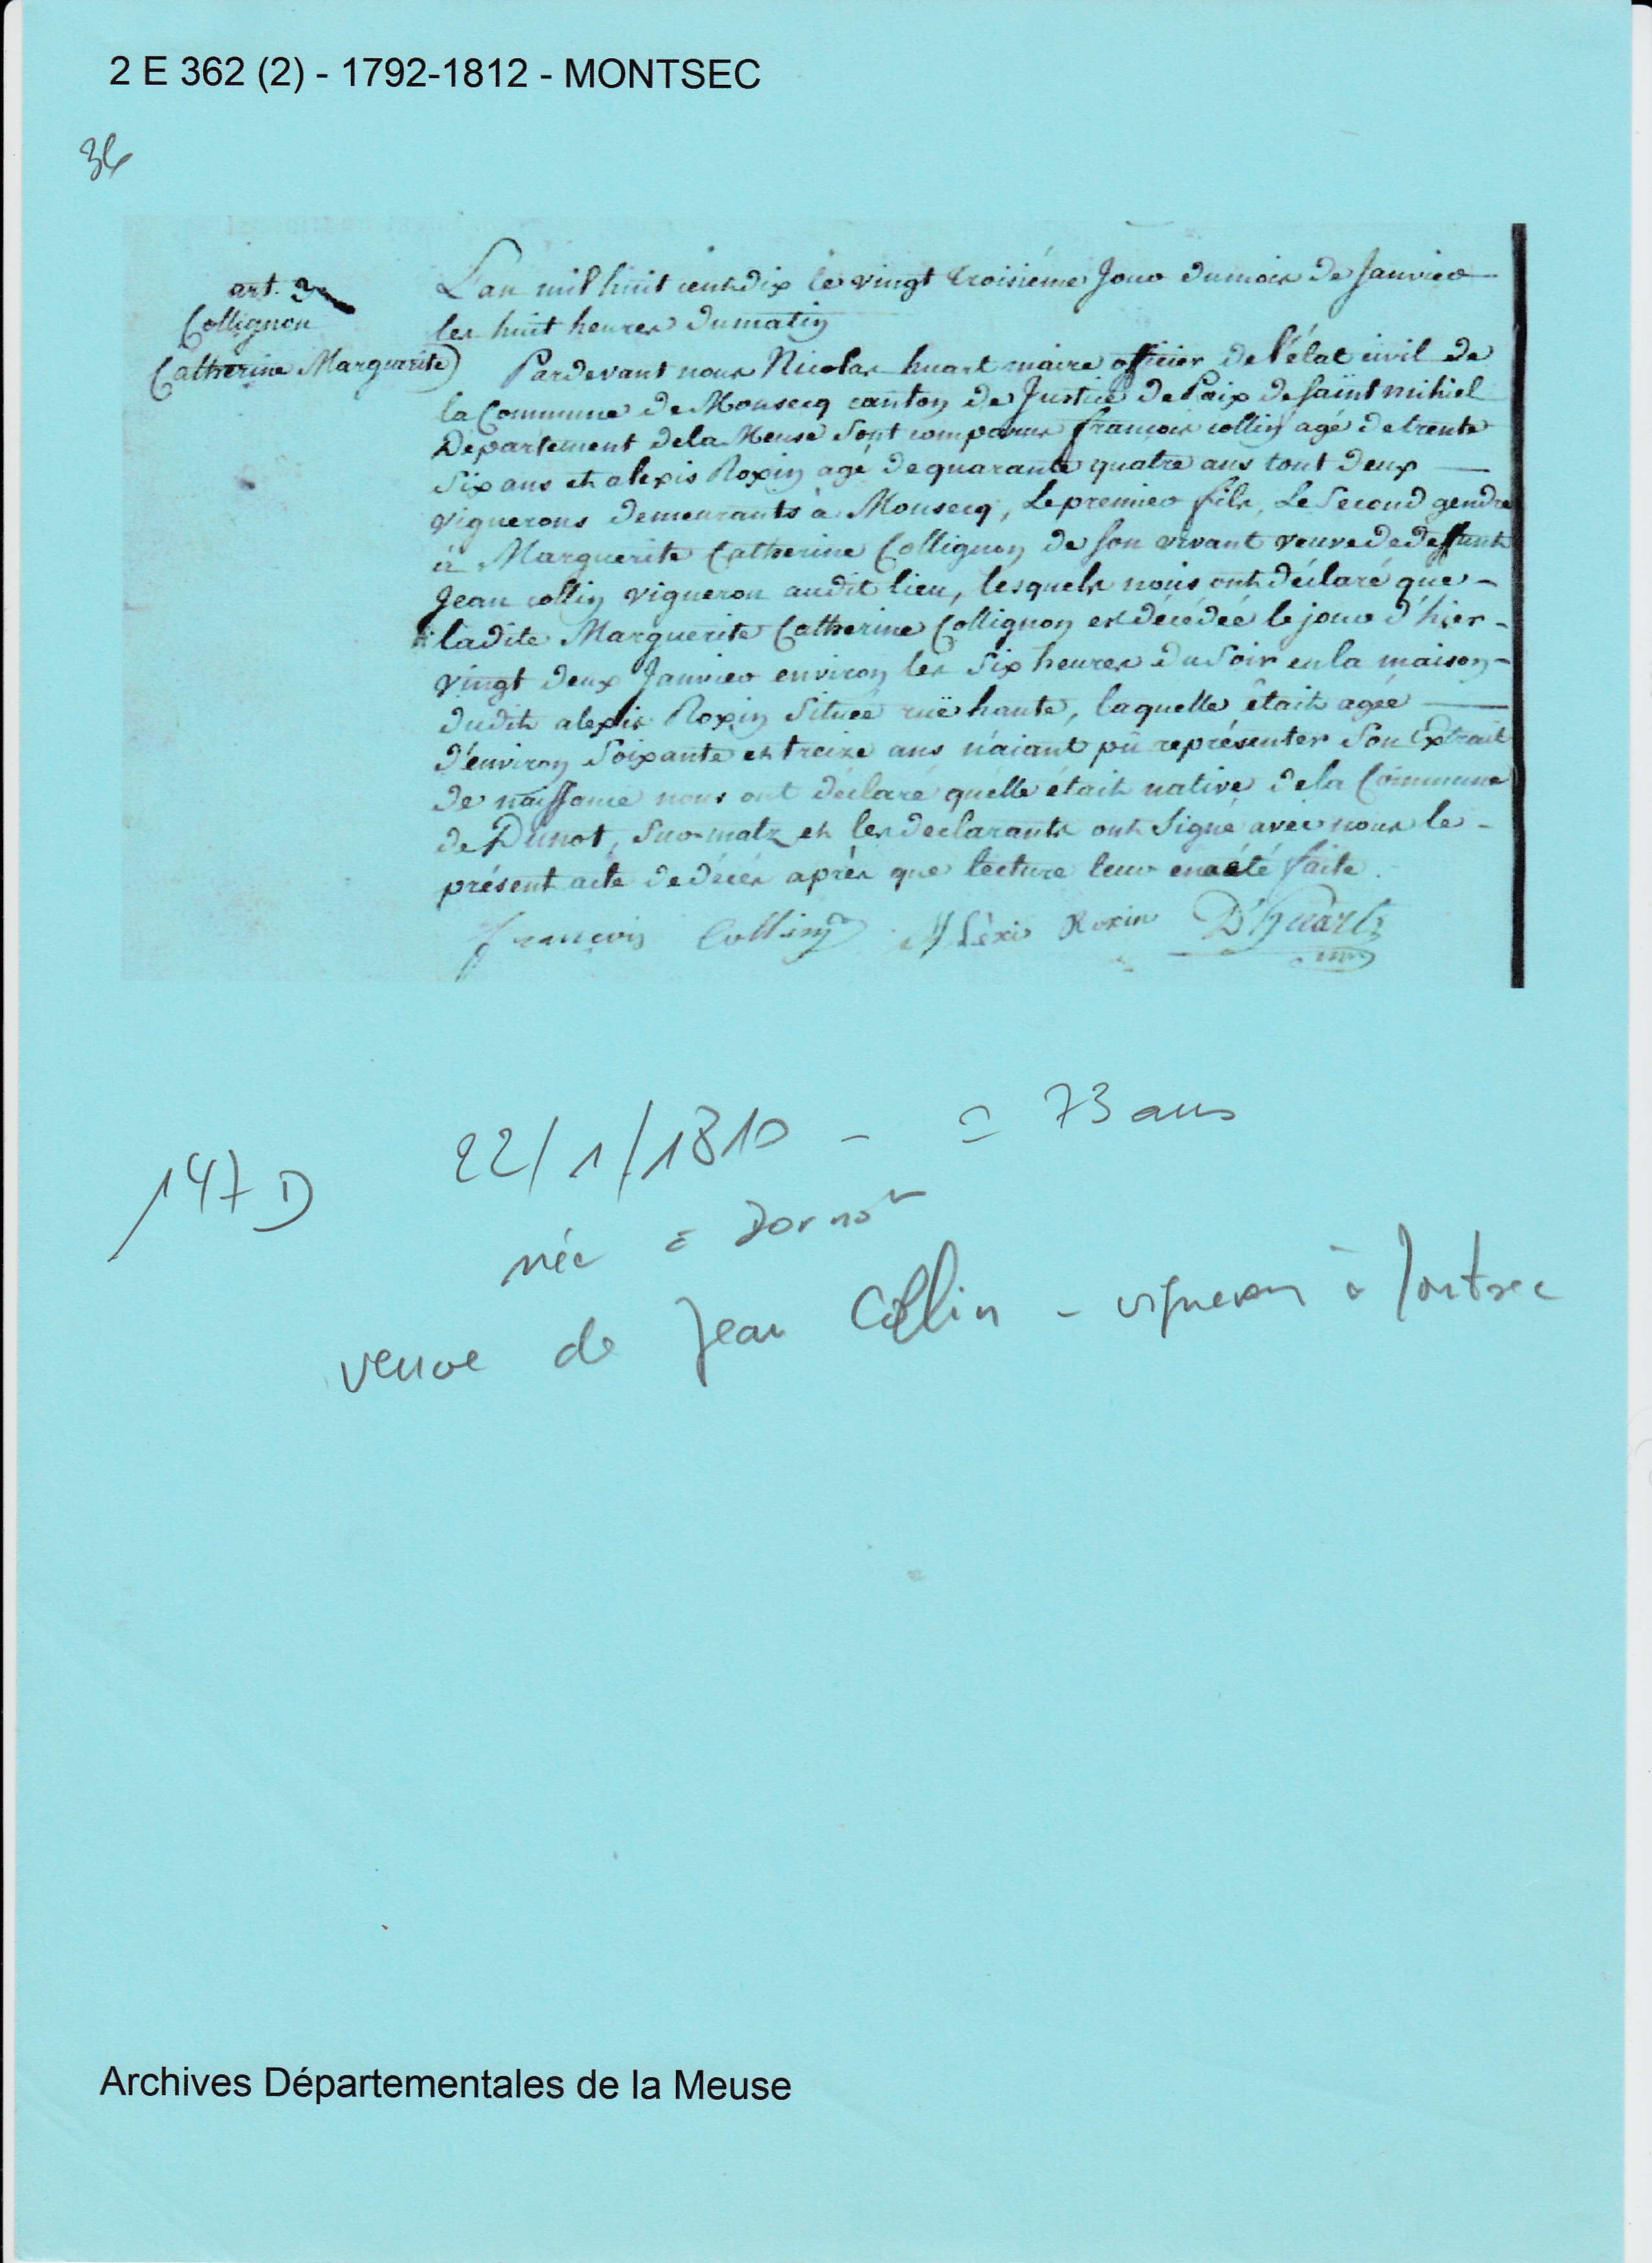 2 E 362 (2) - 1792-1812 - MONTSEC
36
art. 3
Collignon
Catherine Marguerite
L'an mil huit cent dix le vingt troisiéme Jour du mois de Janvier
les huit heures du matin
Pardevant nous Nicolas huart maire officier de l'état civil de
la Commune de Monsecq canton de Justice de Paix de saint mihiel
Département de la Meuse sont comparus françois collin agé de trente
six ans et alexis Roxin agé de quarante quatre ans tout deux
vignerons demeurants à Monsecq, Le premier fils, Le second gendre
à Marguerite Catherine Collignon de son vivant veuve de deffunt
Jean collin vigneron audit lieu, lesquels nous ont déclaré que
ladite Marguerite Catherine Collignon est décédée le jour d'hier
vingt deux Janvier environ les six heures du soir en la maison
dudit alexis Roxin située ruë haute, laquelle était agée
d'environ soixante et treize ans n'aiant pû représenter son Extrait
de naissance nous ont déclaré qu'elle était native de la Commune
de Dunot, sur-malz et les déclarants ont signé avec nous le
présent acte de décés après que lecture leur en a été faite.
françois Collin Aléxi Roxin D'huart
22/1/1810 - = 73 ans
147 D
née à Dornot
veuve de Jean Collin - vigneron à Montsec
Archives Départementales de la Meuse